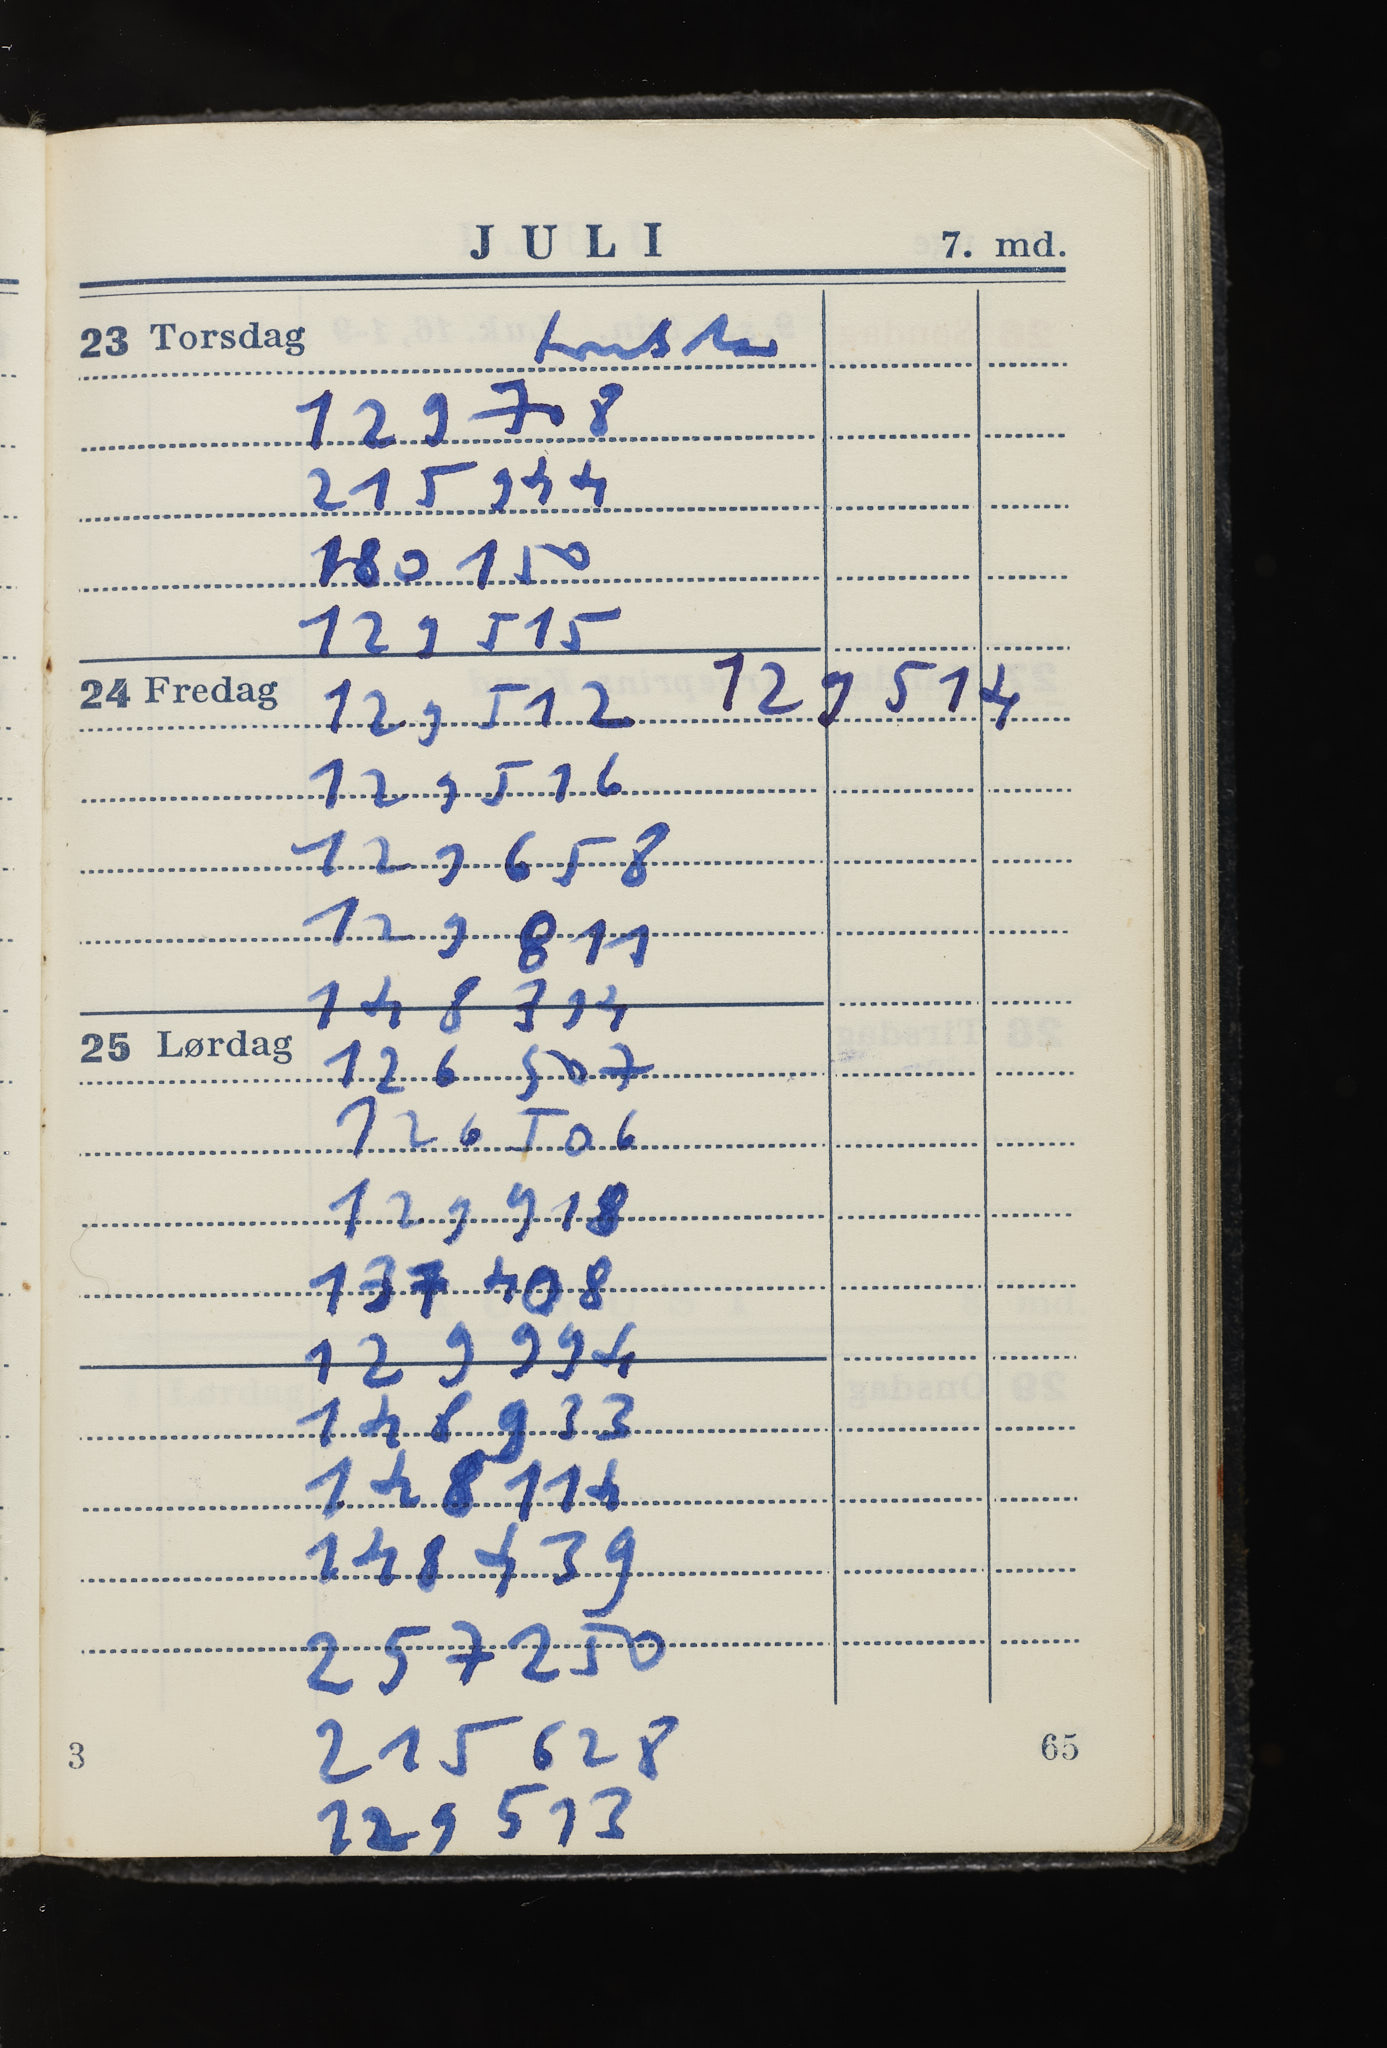 JULI 7. md.
23 Torsdag
129708
215944
180150
129515
24 Fredag 129512 129514
129516
129658
129811
148714
25 Lørdag 126507
126506
129918
137408
129994
148933
148114
148439
257250
215628
3 65
129513